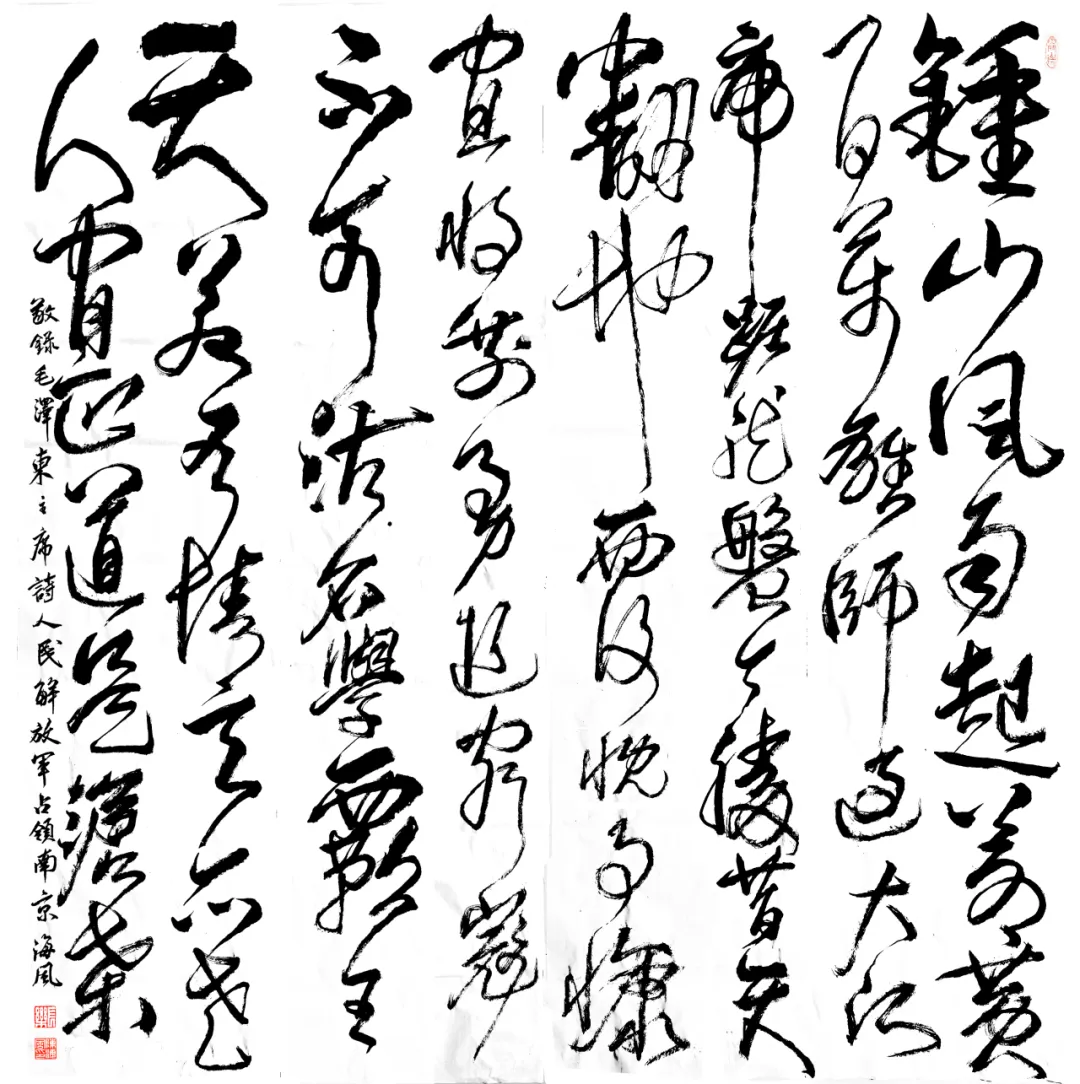 鍾山風雨起蒼黃
百萬雄師過大江
虎踞龍盤今勝昔天
翻地覆慨而慷
宜將剩勇追窮寇
不可沽名學霸王
天若有情天亦老
人間正道是滄桑
敬錄毛澤東主席詩人民解放軍占領南京 海風